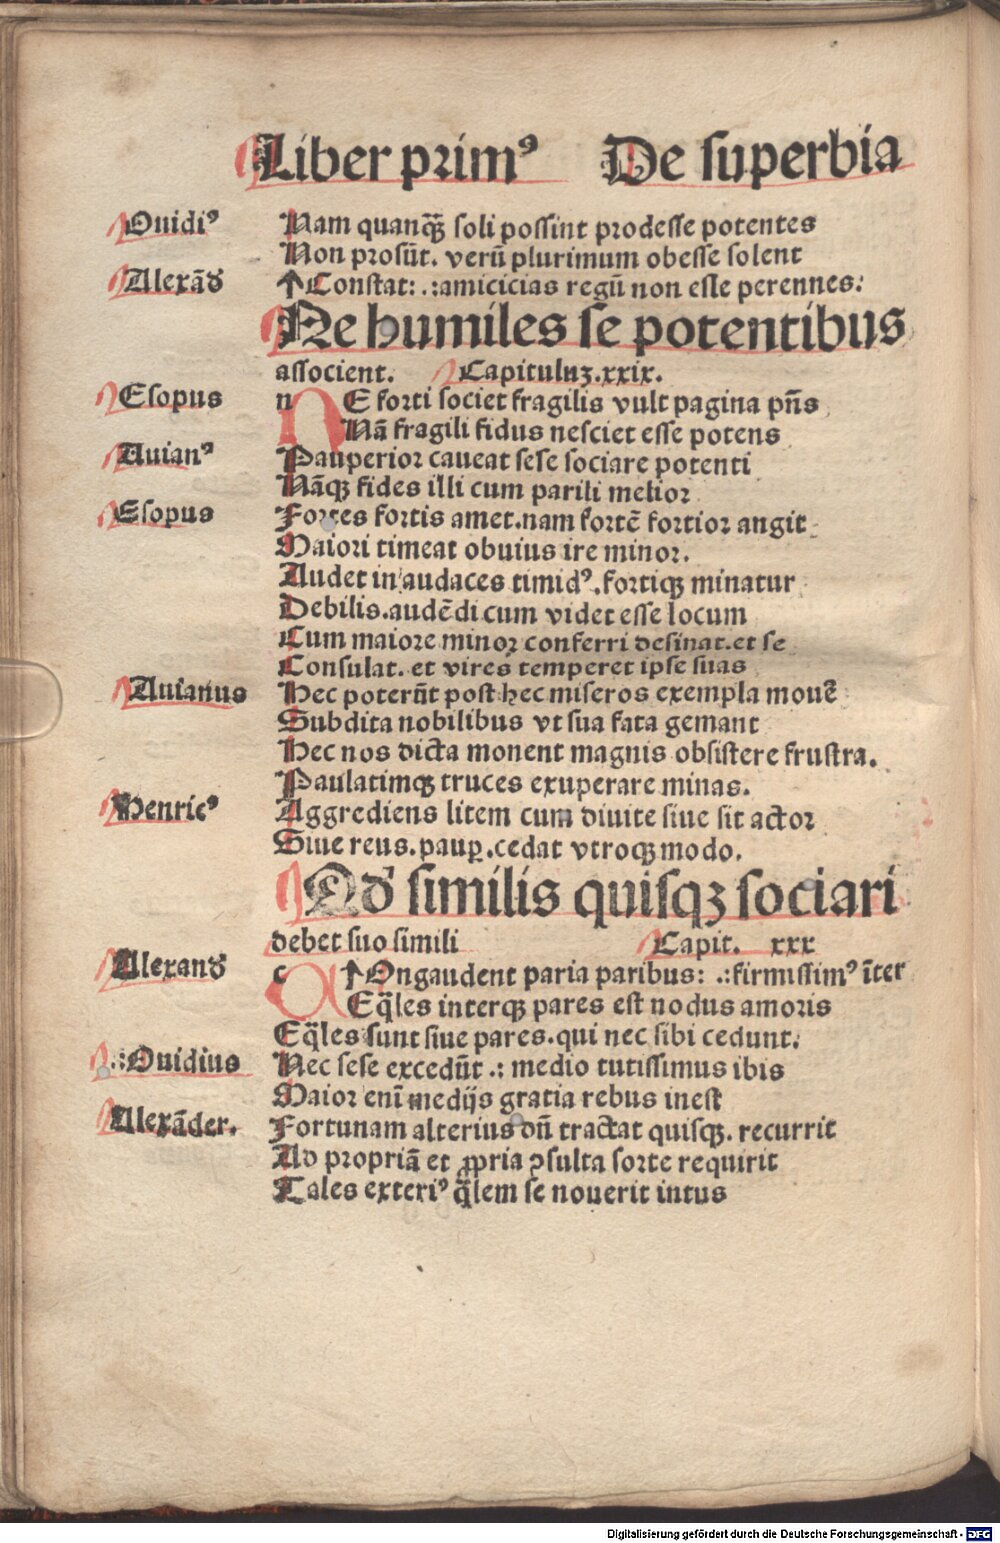 Liber primꝰ De superbia
Ouidiꝰ Nam quanꝙ̃ soli possint prodesse potentes
Non prosũt. verũ plurimum obesse solent
Alexãd ↑Constat: .:amicicias regũ non esse perennes:
Ne humiles se potentibus
associent. Capituluʒ.xxix.
Esopus nE forti societ fragilis vult pagina pñs
Nã fragili fidus nesciet esse potens
Auianꝰ Pauperior caueat sese sociare potenti
Nãqꝫ fides illi cum parili melior
Esopus Fortes fortis amet.nam fortẽ fortior angit
Maiori timeat obuius ire minor.
Audet in audaces timidꝰ.fortiqꝫ minatur
Debilis.audẽdi cum videt esse locum
Cum maiore minor conferri desinat.et se
Consulat. et vires temperet ipse suas
Auianus Hec poterũt post hec miseros exempla mouẽ
Subdita nobilibus vt sua fata gemant
Hec nos dicta monent magnis obsistere frustra.
Paulatimqꝫ truces exuperare minas.
Henricꝰ Aggrediens litem cum diuite siue sit actor
Siue reus.paup̲.cedat vtroqꝫ modo.
Qď similis quisqꝫ sociari
debet suo simili Capit. xxx
Alexand c↑Ongaudent paria paribus: .:firmissimꝰ ĩter
Eq̃les interqꝫ pares est nodus amoris
Eq̃les sunt siue pares.qui nec sibi cedunt:
.:Ouidius Nec sese excedũt .: medio tutissimus ibis
Maior eni medijs gratia rebus inest
Alexãder. Fortunam alterius dũ tractat quisqꝫ. recurrit
Ad propriã et ꝓpria ꝯsulta sorte requirit
Tales exteriꝰ q̃lem se nouerit intus
Digitalisierung gefördert durch die Deutsche Forschungsgemeinschaft - DFG